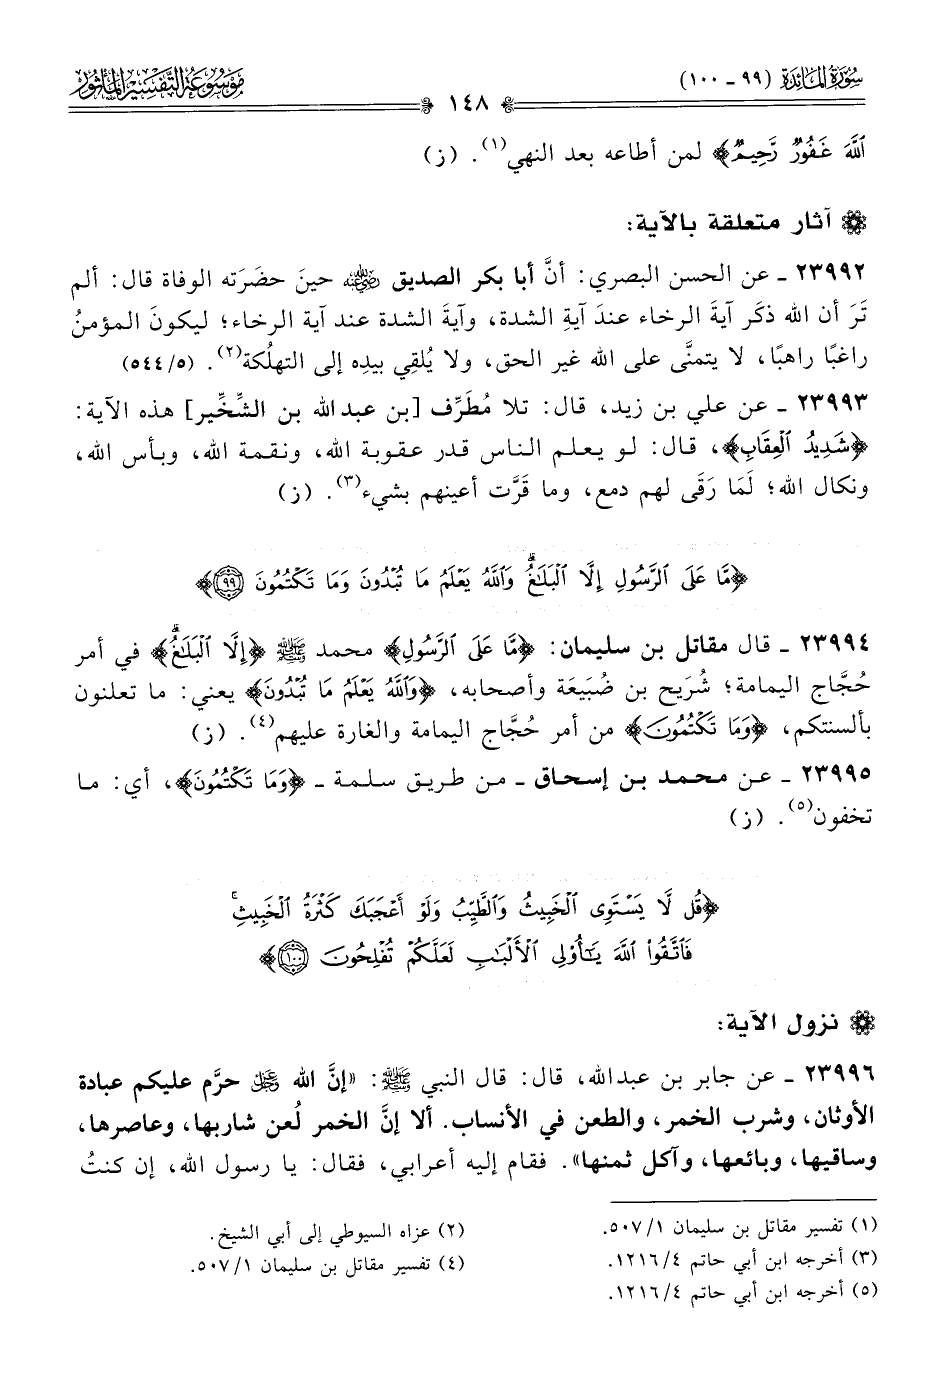 سُورَةُ المَائِدَة (٩٩ - ١٠٠)
مَوْسُوعَة التَّفْسِيرِ المَأْثُور
١٤٨
اللَّهَ غَفُورٌ رَّحِيمٌ﴾ لمن أطاعه بعد النهي(١). (ز)
آثار متعلقة بالآية:
٢٣٩٩٢ - عن الحسن البصري: أنَّ أبا بكر الصديق رضي الله عنه حينَ حضَرَته الوفاة قال: ألم
تَرَ أن الله ذكَر آيةَ الرخاء عندَ آيةِ الشدة، وآيةَ الشدة عند آية الرخاء؛ ليكونَ المؤمنُ
راغبًا راهبًا، لا يتمنَّى على الله غير الحق، ولا يُلقِي بيدِه إلى التهلُكة(٢). (٥٤٤/٥)
٢٣٩٩٣ - عن علي بن زيد، قال: تلا مُطَرِّف [بن عبد الله بن الشِّخِّير] هذه الآية:
﴿شَدِيدُ الْعِقَابِ﴾، قال: لو يعلم الناس قدر عقوبة الله، ونقمة الله، وبأس الله،
ونكال الله؛ لَمَا رَقَى لهم دمع، وما قَرَّت أعينهم بشيء(٣). (ز)
﴿مَّا عَلَى الرَّسُولِ إِلَّا الْبَلَاغُ وَاللَّهُ يَعْلَمُ مَا تُبْدُونَ وَمَا تَكْتُمُونَ ٩٩﴾
٢٣٩٩٤ - قال مقاتل بن سليمان: ﴿مَّا عَلَى الرَّسُولِ﴾ محمد ﷺ ﴿إِلَّا الْبَلَاغُ﴾ في أمر
حُجَّاج اليمامة؛ شُرَيح بن ضُبَيعَة وأصحابه، ﴿وَاللَّهُ يَعْلَمُ مَا تُبْدُونَ﴾ يعني: ما تعلنون
بألسنتكم، ﴿وَمَا تَكْتُمُونَ﴾ من أمر حُجَّاج اليمامة والغارة عليهم(٤). (ز)
٢٣٩٩٥ - عن محمد بن إسحاق - من طريق سلمة - ﴿وَمَا تَكْتُمُونَ﴾، أي: ما
تخفون(٥). (ز)
﴿قُل لَّا يَسْتَوِى الْخَبِيثُ وَالطَّيِّبُ وَلَوْ أَعْجَبَكَ كَثْرَةُ الْخَبِيثِۚ
فَاتَّقُوا اللَّهَ يَٰٓأُولِى الْأَلْبَٰبِ لَعَلَّكُمْ تُفْلِحُونَ ١٠٠﴾
نزول الآية:
٢٣٩٩٦ - عن جابر بن عبد الله، قال: قال النبي ﷺ: «إنَّ الله عز وجل حرَّم عليكم عبادة
الأوثان، وشرب الخمر، والطعن في الأنساب. ألا إنَّ الخمر لُعن شاربها، وعاصرها،
وساقيها، وبائعها، وآكل ثمنها». فقام إليه أعرابي، فقال: يا رسول الله، إن كنتُ
(١) تفسير مقاتل بن سليمان ٥٠٧/١.
(٢) عزاه السيوطي إلى أبي الشيخ.
(٣) أخرجه ابن أبي حاتم ١٢١٦/٤.
(٤) تفسير مقاتل بن سليمان ٥٠٧/١.
(٥) أخرجه ابن أبي حاتم ١٢١٦/٤.